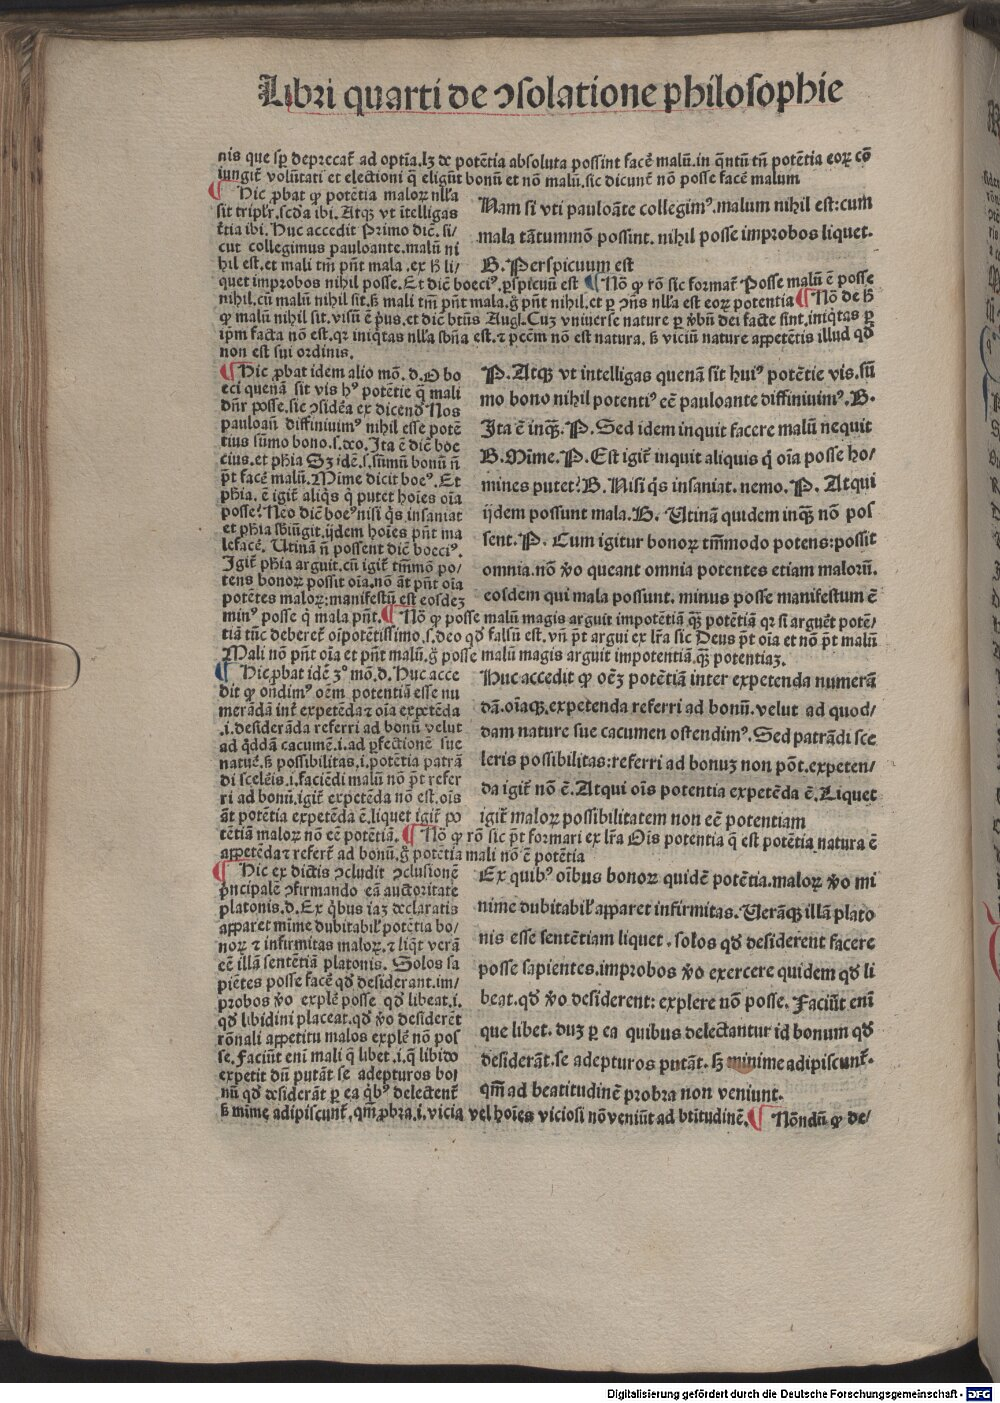 Libri quarti de ↄsolatione philosophie
nis que sꝑ deprecat᷑ ad optīa.lꝫ de potētia absoluta possint facē malū.in q̄ntū tn̄ potētia eoꝝ cō
iungit᷑ volūtati et electioni q̄ eligūt bonū et nō malū.sic dicunt᷑ nō posse facē malum
¶ Hic ꝓbat ꝙ potētia maloꝝ nll̄a
sit triplr̄.scd̓a ibi. Atqꝫ vt ītelligas
t̄tia ibi. Huc accedit Primo dic̄. si/
cut collegimus pauloante.malū ni
hil est.et mali tm̄ pn̄t mala .ex h̄ li/
Nam si vti pauloāte collegimꝰ.malum nihil est:cum
mala tātummō possint. nihil posse improbos liquet.
B. Perspicuum est
quet improbos nihil posse. Et dic̄ boeciꝰ.ꝑspicuū est ¶ Nō ꝙ rō sic format᷑ Posse malū ē posse
nihil.cū malū nihil sit.ẜ mali tm̄ pn̄t mala.g̊ pn̄t nihil.et ꝑ ↄn̄s nll̄a est eoꝝ potentia ¶ Nō de h̄
ꝙ malū nihil sit. visū ē pͥus.et dic̄ btūs Augꝭ. Cuꝫ vniuerse nature ꝑ v̓bū dei facte sint.iniq̄tas ꝑ
ip̄m facta nō est.qꝛ iniq̄tas nll̄a sbn̄a est.⁊ pctm̄ nō est natura. ẜ viciū nature appetētis illud qd̓
non est sui ordinis.
¶ Hic ꝓbat idem alio mō. d. O bo
eci quenā sit vis hꝰ potētie q̄ mali
dn̄r posse.sic ↄsid̓ea ex dicend̓ Nos
pauloan̄ diffiniuimꝰ nihil esse potē
tius sūmo bono.s.deo. Ita ē dic̄ boe
cius.et phīa Sꝫ idē.s.sūmū bonū n̄
pt̄ facē malū. Mime dicit boeꝰ. Et
phīa. ē igit᷑ aliq̄s q̄ putet hoīes oīa
posse? Neo dic̄ boeꝰ nisi q̄s insaniat
et phīa sb̓iūgit.ijdem hoīes pn̄t ma
lefacē. Utinā n̄ possent dic̄ boeciꝰ.
Igit᷑ phīa arguit.cū igit᷑ tm̄mō po/
tens bonoꝝ possit oīa.nō āt pn̄t oīa
potētes maloꝝ:manifestū est eosdeꝫ
P. Atqꝫ vt intelligas quenā sit huiꝰ potētie vis.sū
mo bono nihil potentiꝰ eē pauloante diffiniuimꝰ. B.
Ita ē inqꝫ. P. Sed idem inquit facere malū nequit
B. Mime. P. Est igit᷑ inquit aliquis q̄ oīa posse ho/
mines putet? B. Nisi q̄s insaniat. nemo. P. Atqui
ijdem possunt mala. B. Utinā quidem inqꝫ nō pos
sent. P. Cum igitur bonoꝝ tm̄modo potens:possit
omnia.nō v̓o queant omnia potentes etiam malorū.
eosdem qui mala possunt. minus posse manifestum ē
minꝰ posse q̄ mala pn̄t. ¶ Nō ꝙ posse malū magis arguit impotētiā qꝫ potētiā qꝛ si argueret᷑ potē/
tiā tūc deberet᷑ oīpotētissimo.s.deo qd̓ falsū est. vn̄ pt̄ argui ex lr̄a sic Deus pt̄ oīa et nō pt̄ malū
Mali nō pn̄t oīa et pn̄t malū.g̊ posse malū magis arguit impotentiā.qꝫ potentiaꝫ.
¶ Hic ꝓbat idē 3ͦ mō.d. Huc acce
dit ꝙ ondimꝰ oēm potentiā esse nu
merādā int᷑ expetēda ⁊ oīa expetēda
.i.desiderāda referri ad bonū velut
ad q̄ddā cacumē.i.ad ꝑfectionē sue
natur̄.ẜ possibilitas.i.potētia patrā
di scelēis.i.faciēdi malū nō pt̄ refer
ri ad bonū.igit᷑ expetēda nō est.oīs
āt potētia expetēda ē.liquet igit᷑ po
Huc accedit ꝙ oēꝫ potētiā inter expetenda numerā
dā.oīaqꝫ.expetenda referri ad bonū. velut ad quod/
dam nature sue cacumen ostendimꝰ. Sed patrādi sce
leris possibilitas:referri ad bonuꝫ non pōt.expeten/
da igit᷑ nō ē. Atqui oīs potentia expetēda ē. Liquet
igit᷑ maloꝝ possibilitatem non eē potentiam
tētiā maloꝝ nō eē potētiā. ¶ Nō ꝙ rō sic pt̄ formari ex lr̄a Oīs potentia q̄ est potētia natura ē
appetēda ⁊ refert᷑ ad bonū.g̊ potētia mali nō ē potētia
¶ Hic ex dictis ↄcludit ↄclusionē
pͥncipalē ↄfirmando eā auctoritate
platonis.d. Ex q̄bus iaꝫ declaratis
apparet mīme dubitabilꝭ potētia bo/
noꝝ ⁊ infirmitas maloꝝ.⁊ liq̄t verā
eē illā sentētiā platonis. Solos sa
piētes posse facē qd̓ desiderant.im/
probos v̓o explē posse qd̓ libeat.i.
qd̓ libidini placeat.qd̓ v̓o desiderēt
rōnali appetitu malos explē nō pos
se. Faciūt eni mali q̄ libet.i.q̄ libido
expetit dū putāt se adepturos bo/
nū qd̓ desiderāt ꝑ ea q̄bꝰ delectent᷑
Ex quibꝰ oībus bonoꝝ quidē potētia.maloꝝ v̓o mi
nime dubitabilꝭ apparet infirmitas. Uerāqꝫ illā plato
nis esse sentētiam liquet . solos qd̓ desiderent facere
posse sapientes.improbos v̓o exercere quidem qd̓ li
beat.qd̓ v̓o desiderent: explere nō posse. Faciūt enī
que libet. duꝫ ꝑ ea quibus delectantur id bonum qd̓
desiderāt.se adepturos putāt. ẜ minime adipiscunt᷑.
qm̄ ad beatitudinē probra non veniunt.
ẜ mime adipiscunt᷑.qm̄ ꝓbra.i.vicia vel hoīes viciosi nō veniūt ad btitudinē. ¶ Nōndū ꝙ de/
Digitalisierung gefördert durch die Deutsche Forschungsgemeinschaft - DFG